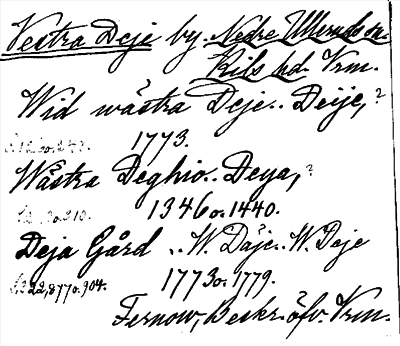 Vestra Deje by. Nedre Ulleruds sn.
Kils hd. Vrm.
Wid wästra Deje.. Deije,?
1773.
Wästra Deghio.. Deya,?
1346 o. 1440.
Deja Gård .. W. Däje.. W. Deje
S. 22, 877 o. 904.
1773 o. 1779.
Fernow, Beskr. öfv. Vrm.